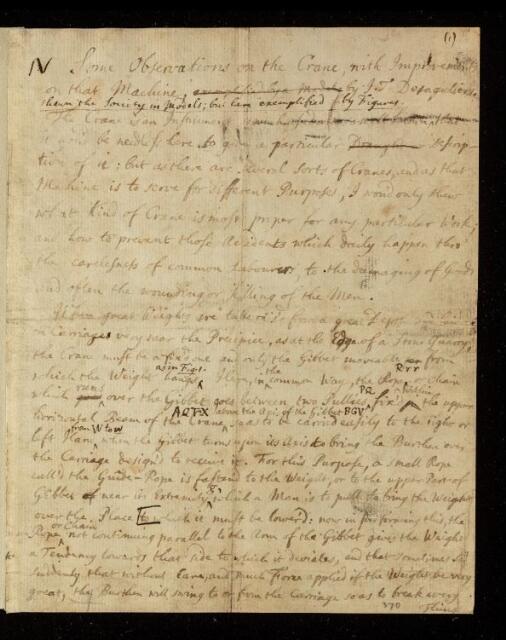 (1)
IV Some Observations on the Crane, with Improvements
on that Machine, exemplified by a Model by J. T. Desaguliers
shewn the Society in Models; but here exemplified by Figures.
The Crane is an Instrument
it would be needless here to give a particular Draught Descrip
tion of it: but as there are several sorts of Cranes, and as that
Machine is to serve for different Purposes, I wou'd only shew
what kind of Crane is most proper for any particular Work;
and how to prevent those Accidents which daily happen thro'
the carelessness of common Labourers to the damaging of Goods
and often the wounding or killing of the Men.
If very great Weights are to be rais'd from a great Depth
on Carriages very near the Precipice, as at the Edge of a Stone Quarry,
the Crane must be a fix'd one and only the Gibbet moveable from
as in Fig. 1. the Rrr
which the Weight hangs. Here, in common Way, the Rope or Chain
runs PQ within
which over the Gibbet goes between two Pullies fix'd the upper
ARTX above the Axis of the Gibbet BGV
horizontal Beam of the Crane so as to be carried easily to the right or
from W to w
left Hand, when the Gibbet turns upon its Axis to bring the Burthen over
the Carriage design'd to receive it. For this Purpose, a small Rope
call'd the Guide-Rope is fasten'd to the Weight, or to the upper Part of
Gibbet near its extremity which a Man is to pull to bring the Weight
over the Place to which it must be lower'd: now in performing this, the
or Chain
Rope not continuing parallel to the Arm of the Gibbet gives the Weight
a Tendency towards that side to which it deviates, and that sometimes so
suddenly that without Care, and much Force applied if the Weight be very
great, the Burthen will swing to or from the Carriage so as to break every
370 Thing